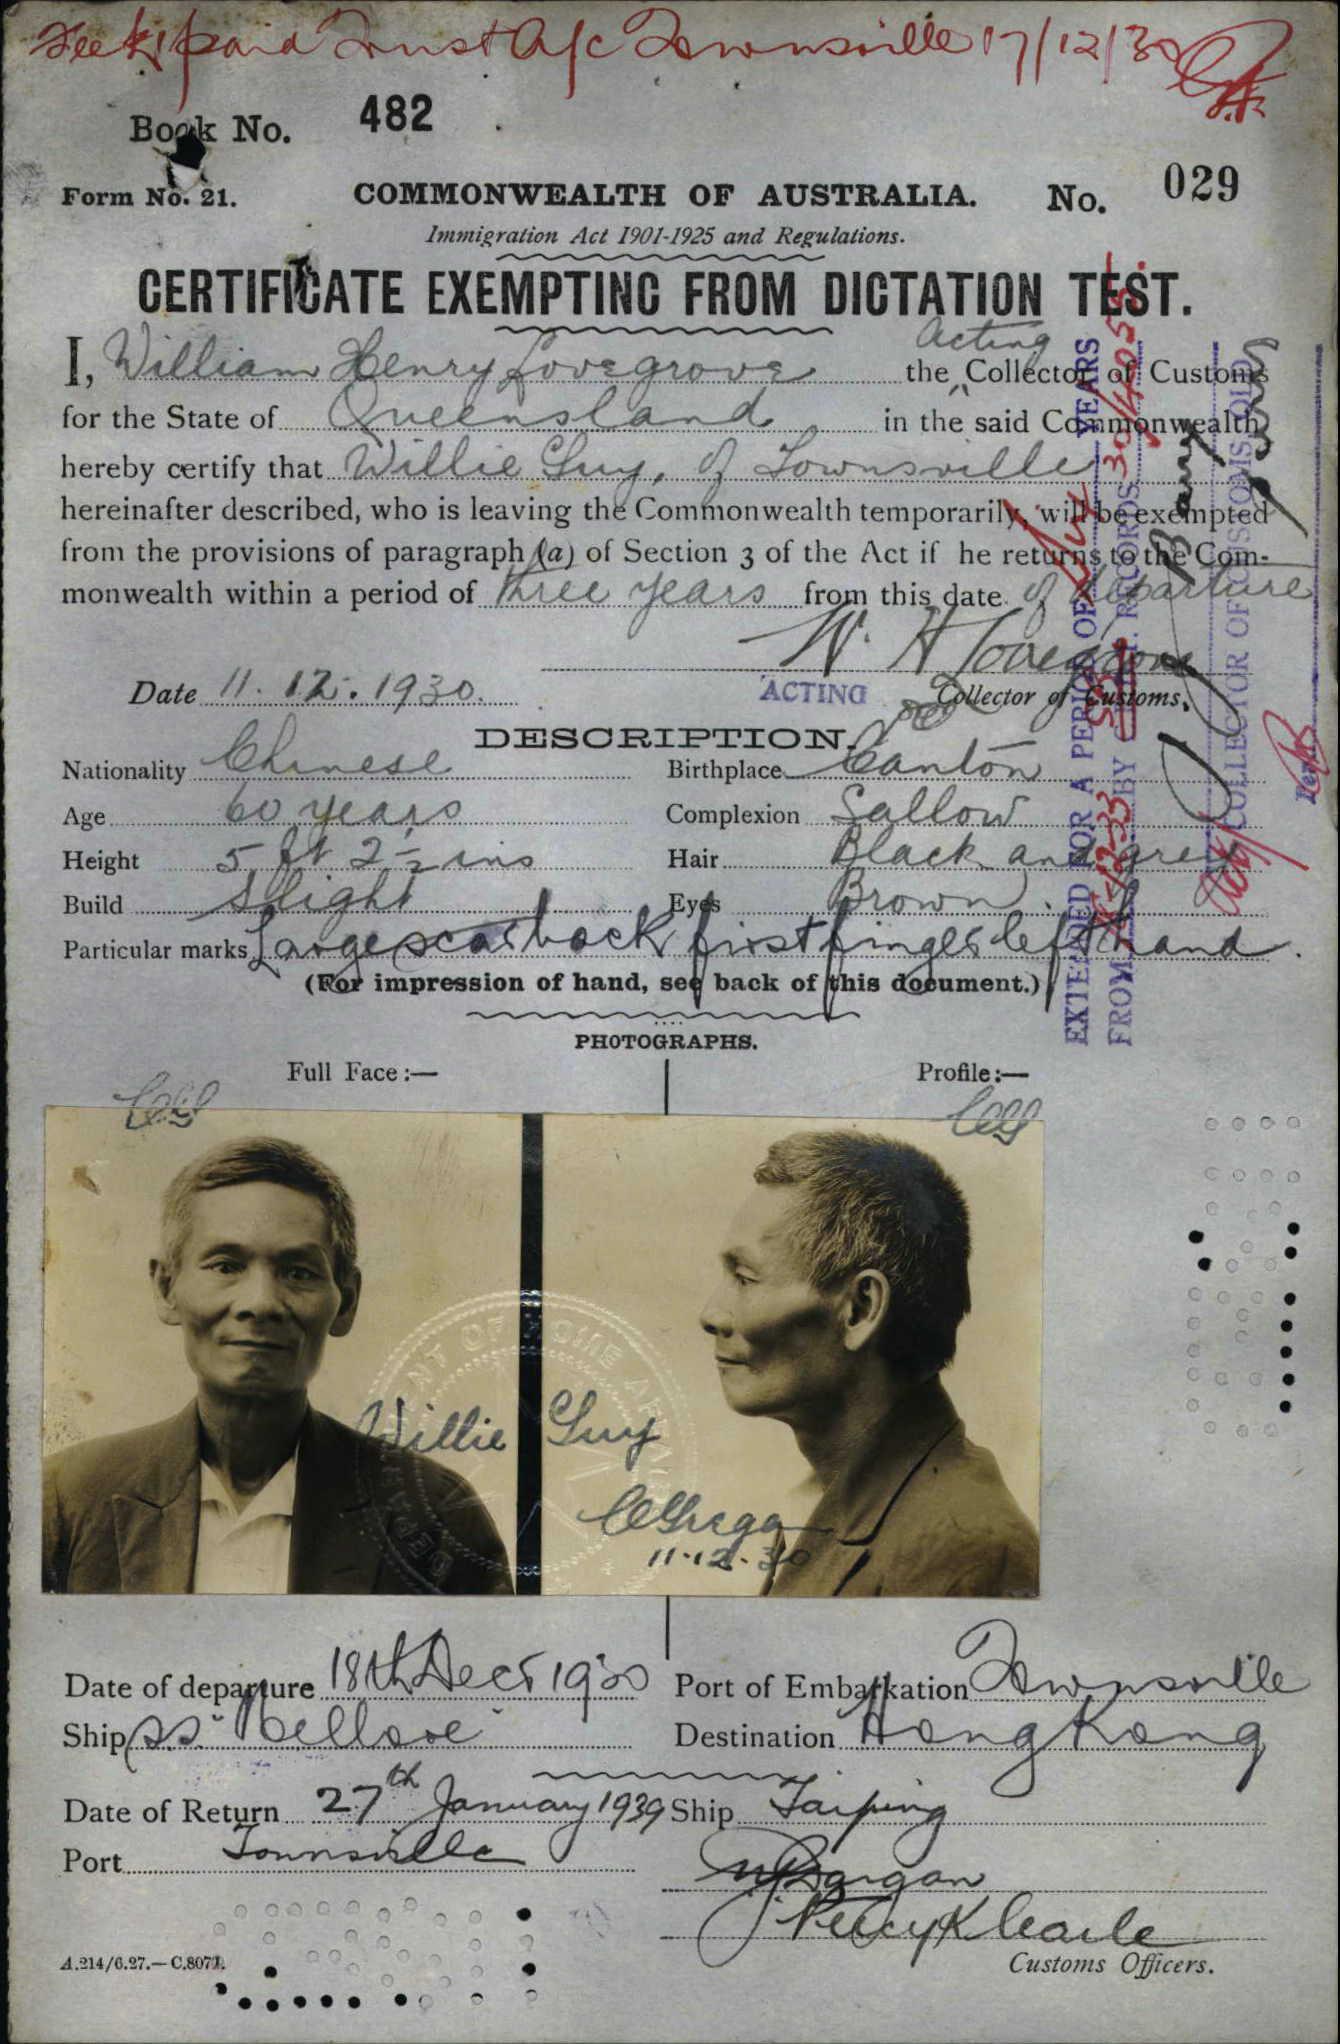 Fee £1 paid Trust A/c Townsville 17/12/30
Book No. 482
Form No. 21. COMMONWEALTH OF AUSTRALIA. No. 029
Immigration Act 1901-1925 and Regulations.
CERTIFICATE EXEMPTING FROM DICTATION TEST.
I, William Henry Lovegrove Acting the Collector of Customs
for the State of Queensland in the said Commonwealth
hereby certify that Willie Guy, of Townsville
hereinafter described, who is leaving the Commonwealth temporarily, will be exempted
from the provisions of paragraph (a) of Section 3 of the Act if he returns to the Com-
monwealth within a period of three years from this date of departure
W. H Lovegrove
Date 11. 12. 1930. ACTING Collector of Customs.
DESCRIPTION.
Nationality Chinese Birthplace Canton
Age 60 years Complexion Sallow
Height 5 ft 2½ ins Hair Black and grey
Build Slight Eyes Brown
Particular marks Large scar back first finger left hand.
(For impression of hand, see back of this document.)
EXTENDED FOR A PERIOD OF YEARS
FROM BY RECORDS
COLLECTOR OF CUSTOMS, QLD
PHOTOGRAPHS.
Full Face:— Profile:—
DEPARTMENT OF HOME AFFAIRS
Willie Guy
11-12-30
Date of departure 18th Decr 1930 Port of Embarkation Townsville
Ship s.s. Destination Hong Kong
Date of Return 27th January 1939 Ship Taiping
Port Townsville
Customs Officers.
A.214/6.27.—C.8071.